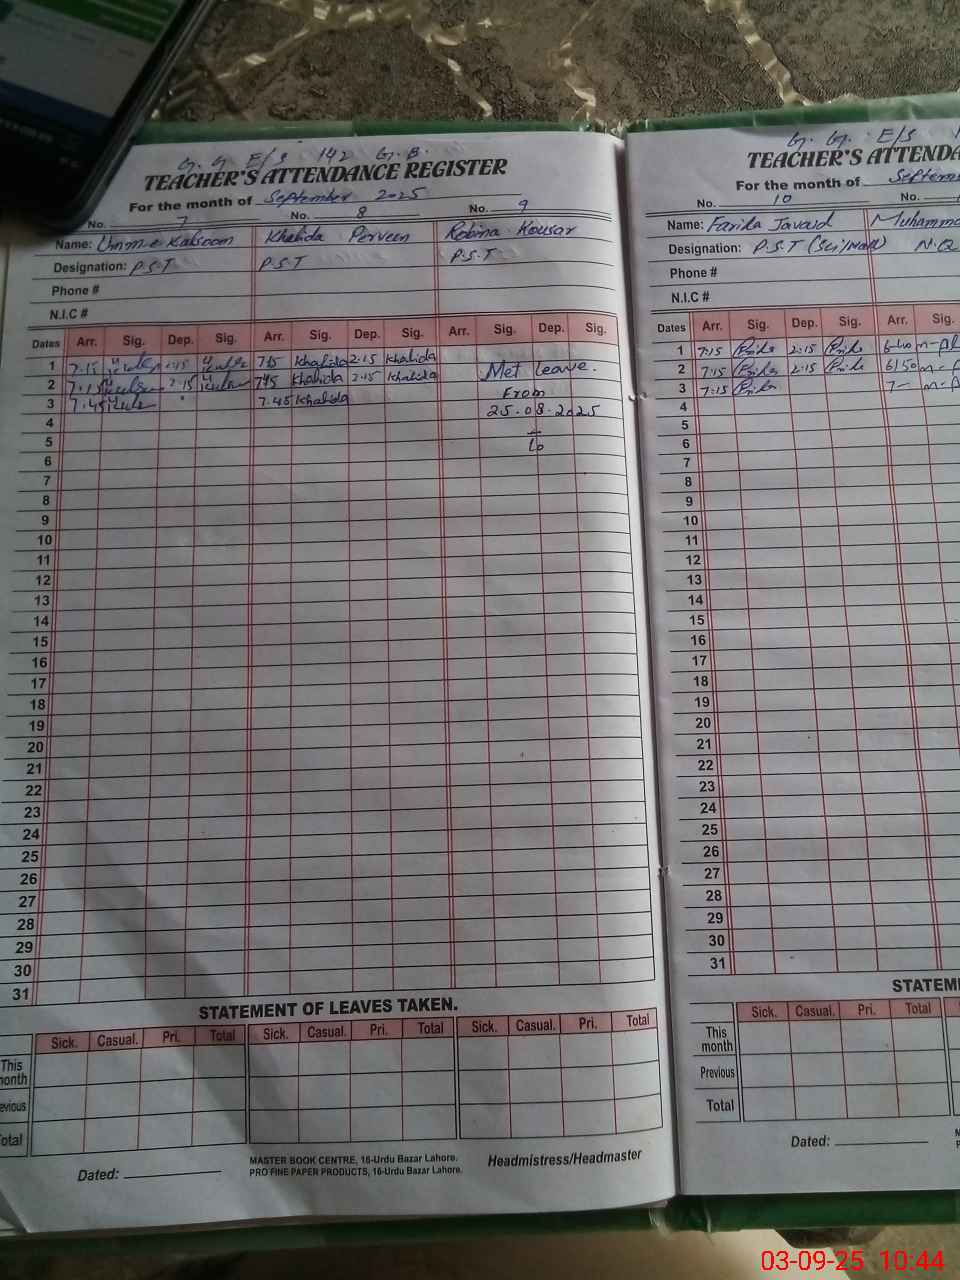 G. G E/S 142 G.B.
TEACHER'S ATTENDANCE REGISTER
For the month of September 2025
No. 7 No. 8 No. 9
Name: Umm-e-Kalsoom Khalida Perveen Robina Kousar
Designation: P.S.T P.S.T P.S.T
Phone #
N.I.C #
Dates Arr. Sig. Dep. Sig. Arr. Sig. Dep. Sig. Arr. Sig. Dep. Sig.
1 7.15 2.15 7.15 Khalida 2.15 Khalida
2 7.15 2.15 7.45 Khalida 2.15 Khalida Met leave.
3 7.45 7.45 Khalida From
4 25.08.2025
5 to
6
7
8
9
10
11
12
13
14
15
16
17
18
19
20
21
22
23
24
25
26
27
28
29
30
31
STATEMENT OF LEAVES TAKEN.
Sick. Casual. Pri. Total Sick. Casual. Pri. Total Sick. Casual. Pri. Total
This
month
evious
otal
Dated:
MASTER BOOK CENTRE, 16-Urdu Bazar Lahore.
PRO FINE PAPER PRODUCTS, 16-Urdu Bazar Lahore.
Headmistress/Headmaster
G. G. E/S 1
TEACHER'S ATTENDA
For the month of Septem
No. 10 No.
Name: Farika Javaid Muhamma
Designation: P.S.T (Sci/Math) N.Q
Phone #
N.I.C #
Dates Arr. Sig. Dep. Sig. Arr. Sig.
1 7:15 2:15 6:40
2 7:15 2:15 6:50
3 7:15 7-
4
5
6
7
8
9
10
11
12
13
14
15
16
17
18
19
20
21
22
23
24
25
26
27
28
29
30
31
STATEM
Sick. Casual. Pri. Total
This
month
Previous
Total
Dated:
03-09-25 10:44